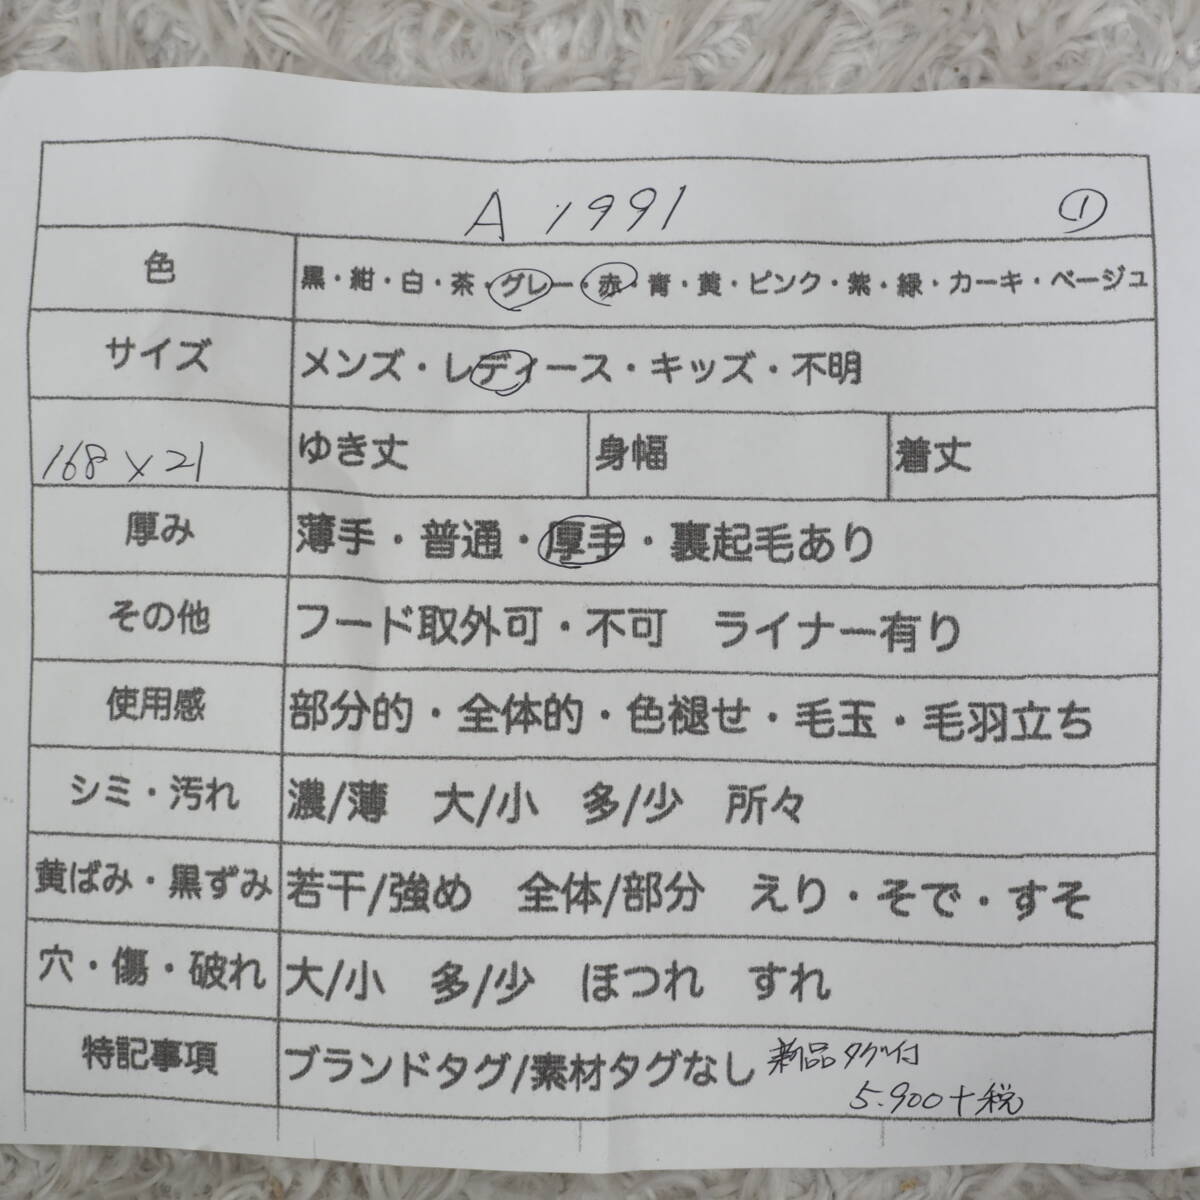 A 1991 ①
色 黒・紺・白・茶・グレー・赤・青・黄・ピンク・紫・緑・カーキ・ベージュ
サイズ メンズ・レディース・キッズ・不明
168×21 ゆき丈 身幅 着丈
厚み 薄手・普通・厚手・裏起毛あり
その他 フード取外可・不可 ライナー有り
使用感 部分的・全体的・色褪せ・毛玉・毛羽立ち
シミ・汚れ 濃/薄 大/小 多/少 所々
黄ばみ・黒ずみ 若干/強め 全体/部分 えり・そで・すそ
穴・傷・破れ 大/小 多/少 ほつれ すれ
特記事項 ブランドタグ/素材タグなし 新品タグ付
5.900+税